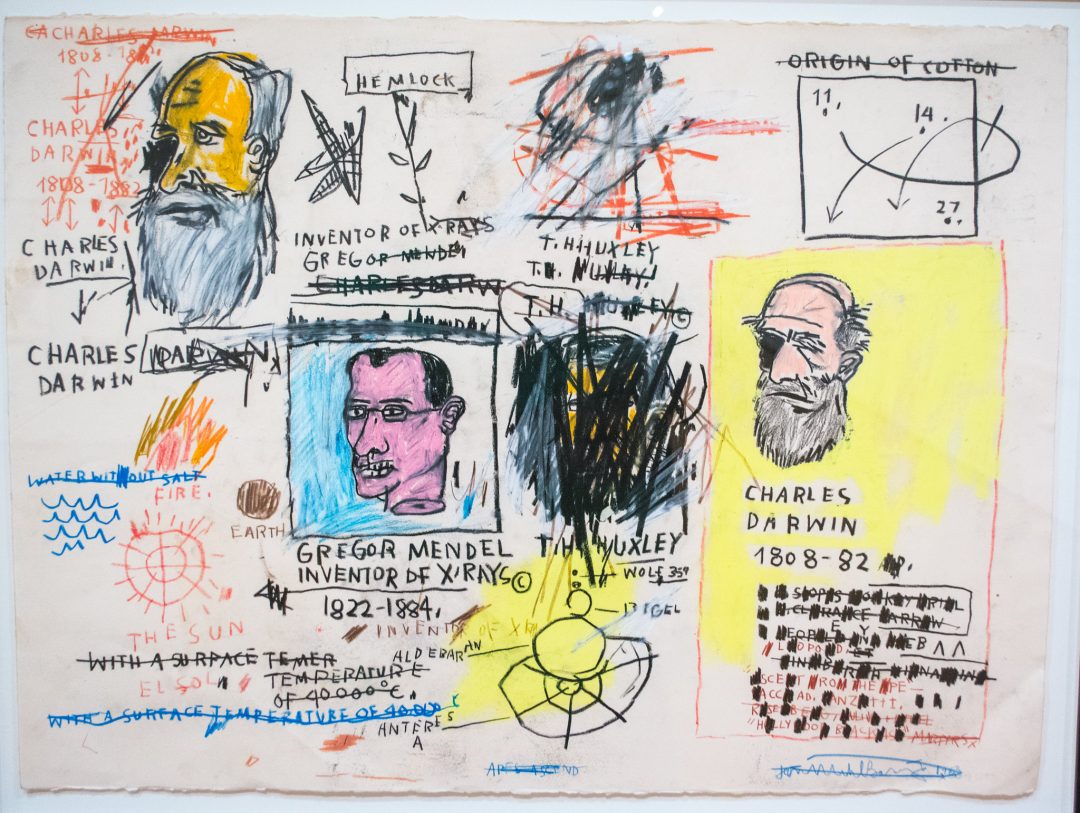 CHARLES DARWIN
1808-188
CHARLES
DARWIN
1808-1882
CHARLES
DARWIN.
CHARLES DARWIN
DARWIN
HEMLOCK
INVENTOR OF X-RAYS
GREGOR MENDEL
CHARLES DARW
T.H HUXLEY
T.H. HUXLAY!
T.H. HUXLEY ©
ORIGIN OF COTTON
11.
14.
27
WATER WITHOUT SALT
FIRE.
EARTH
THE SUN
EL SOL
GREGOR MENDEL
INVENTOR OF X'RAYS ©
1822-1884.
INVENTOR OF X RA
WITH A SURFACE TEMER
TEMPERATURE
OF 40000°C.
WITH A SURFACE TEMPERATURE OF 40.000°C
T.H. HUXLEY
WOLF 359
RIGEL
ALDEBARAN
ANTERES
A
CHARLES
DARWIN
1808-82
PEOPLE
LEOPOLD
SCENT FROM THE APE
HOLLYWOOD
MARTYRS
APES ASCEND